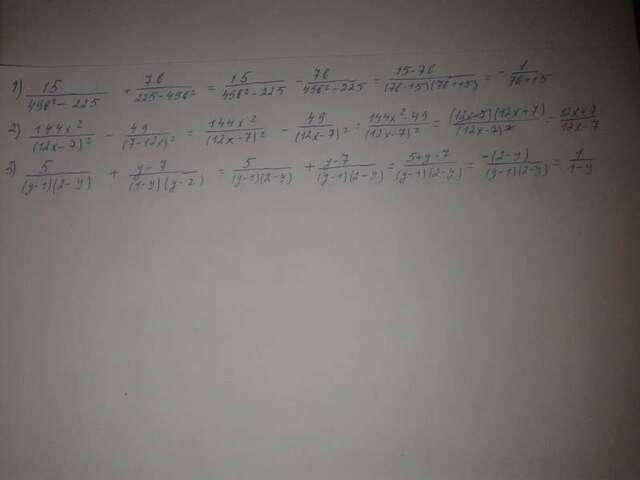 1) 15/(49b²-225) + 7b/(225-49b²) = 15/(49b²-225) - 7b/(49b²-225) = (15-7b)/((7b-15)(7b+15)) = -1/(7b+15)
2) 144x²/(12x-7)² - 49/(7-12x)² = 144x²/(12x-7)² - 49/(12x-7)² = (144x²-49)/(12x-7)² = (12x-7)(12x+7)/(12x-7)² = (12x+7)/(12x-7)
3) 5/((y-1)(2-y)) + (y-7)/((1-y)(y-2)) = 5/((y-1)(2-y)) + (y-7)/((y-1)(2-y)) = (5+y-7)/((y-1)(2-y)) = -(2-y)/((y-1)(2-y)) = 1/(1-y)